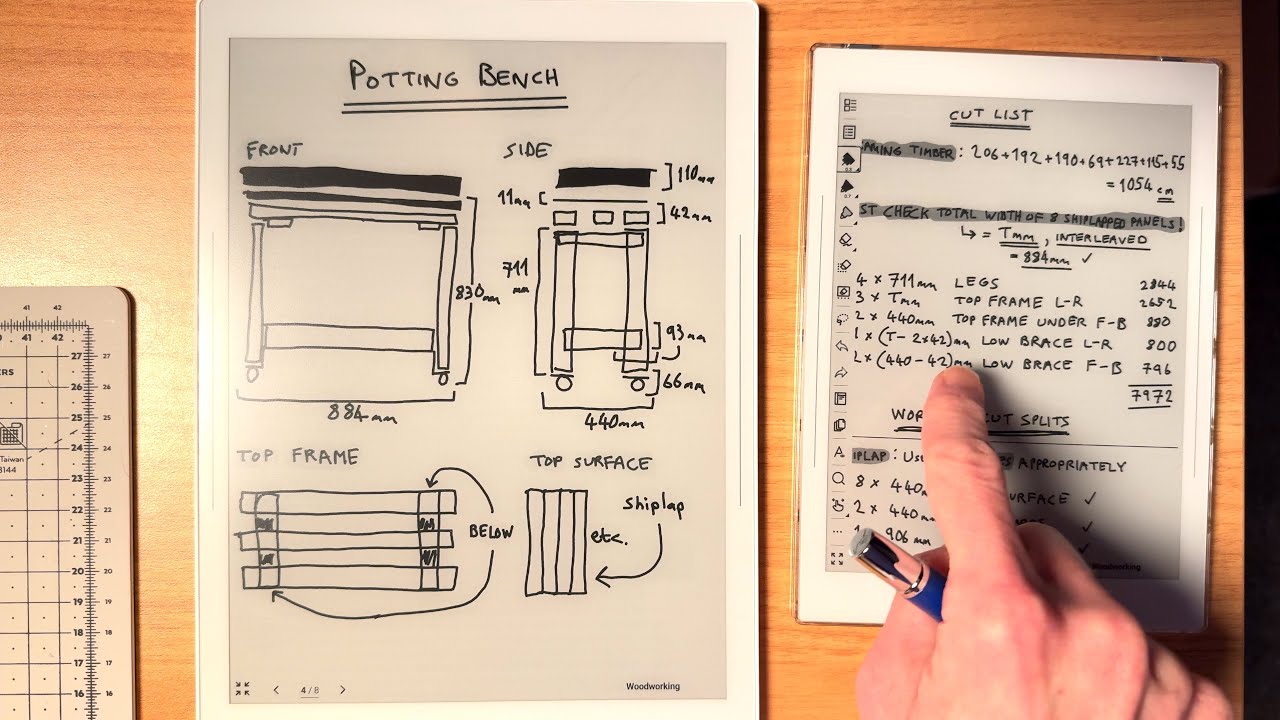 POTTING BENCH
FRONT
SIDE
110mm
11mm
42mm
711
mm
830mm
93mm
66mm
884mm
440mm
TOP FRAME
TOP SURFACE
BELOW
shiplap
etc.
4 / 8
Woodworking
CUT LIST
AMING TIMBER: 206+192+190+69+227+115+55
= 1054 cm
ST CHECK TOTAL WIDTH OF 8 SHIPLAPPED PANELS!
↳ = Tmm, INTERLEAVED
= 884mm ✓
4 × 711mm LEGS 2844
3 × Tmm TOP FRAME L-R 2652
2 × 440mm TOP FRAME UNDER F-B 880
1 × (T-2×42)mm LOW BRACE L-R 800
2 × (440-42)mm LOW BRACE F-B 796
7972
WOR CUT SPLITS
IPLAP: APPROPRIATELY
8 × 440 SURFACE ✓
2 × 440m ✓
906 mm ✓
Woodworking
0.3
0.7
A
41 42
41 42
27
26
25
24
23
22
21
20
19
18
17
16
ERS
Taiwan
3144